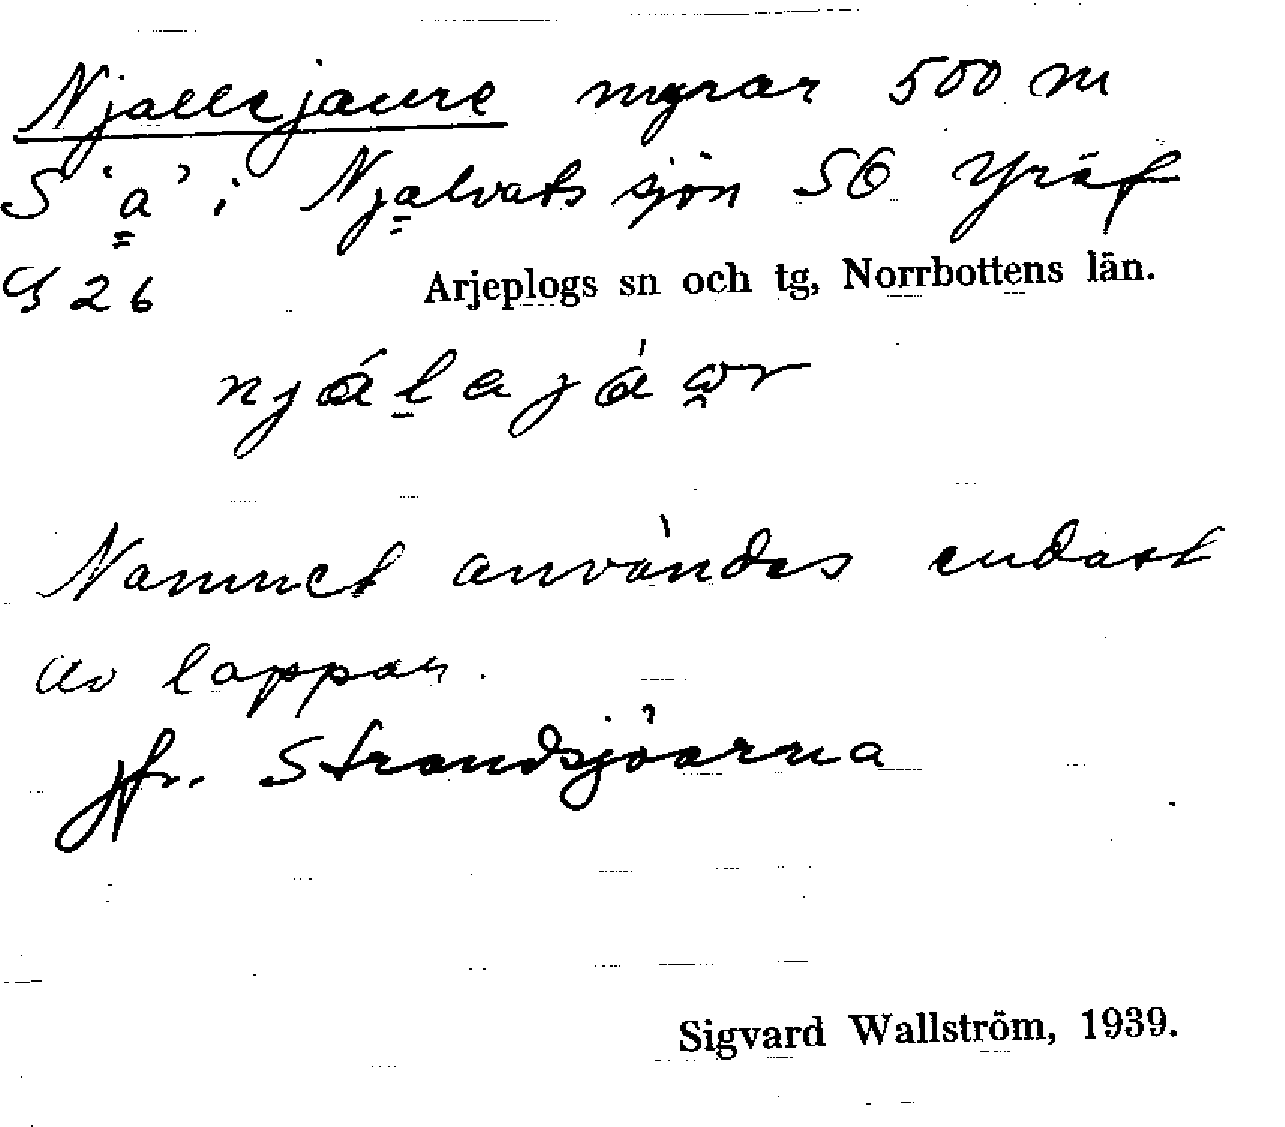 Njallejaure myrar 500 m
S "a" i Njalvatssjön 56 Gräf
G 26 Arjeplogs sn och tg, Norrbottens län.
njálajáwr
Namnet användes endast
av lappar.
jfr. Strandsjöarna
Sigvard Wallström, 1939.